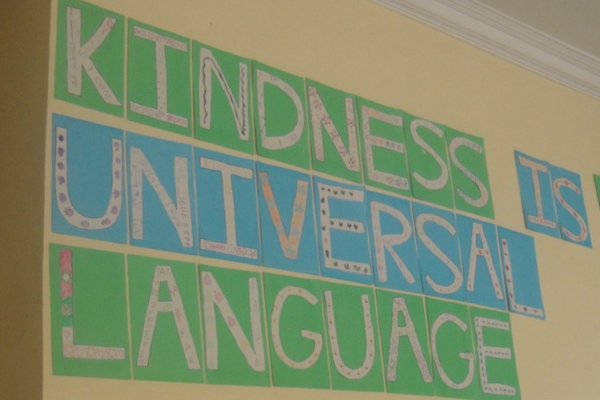 KINDNESS IS
UNIVERSAL
LANGUAGE